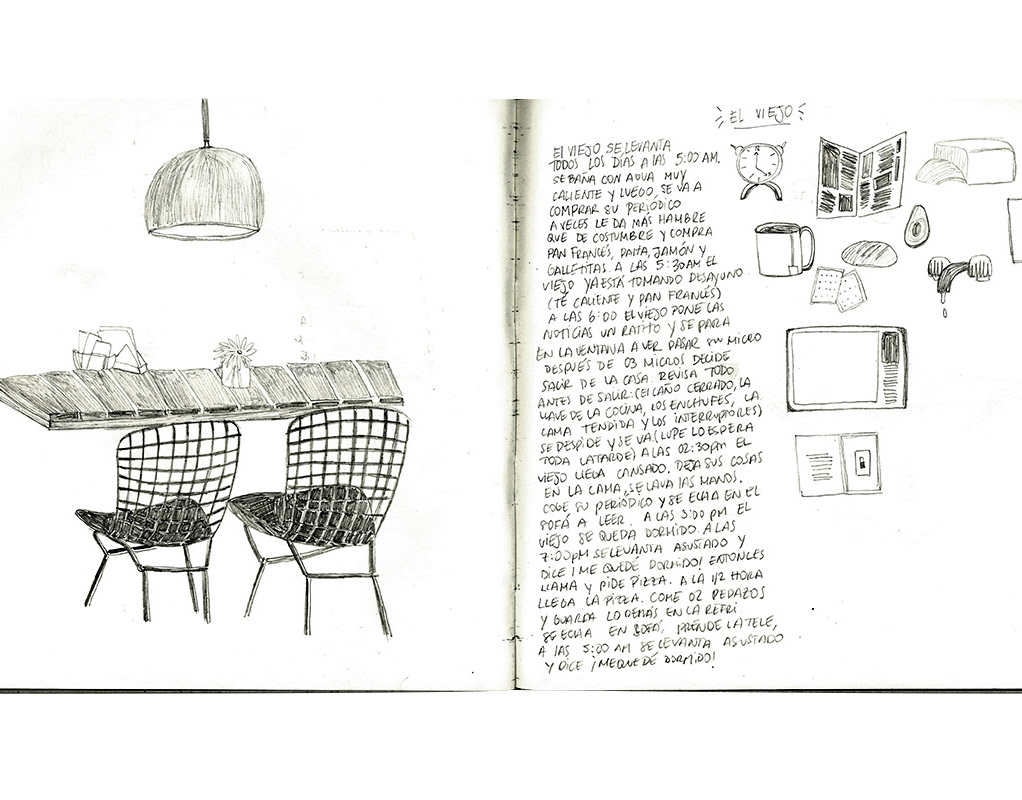 EL VIEJO
El VIEJO SE LEVANTA
TODOS LOS DÍAS A lAS 5:00 AM.
SE BAÑA CON AGUA MUY
CALIENTE Y LUEGO, SE VA A
COMPRAR SU PERIÓDICO
A VECES LE DA MAS HAMBRE
QUE DE COSTUMBRE Y COMPRA
PAN FRANCÉS, PALTA, JAMÓN Y
GALLETITAS. A LAS 5:30AM EL
VIEJO YA ESTÁ TOMANDO DESAYUNO
(TÉ CALIENTE Y PAN FRANCÉS)
A LAS 6:00 El VIEJO PONE LAS
NOTICIAS UN RATITO Y SE PARA
EN LA VENTANA A VER PASAR SU MICRO
DESPUÉS DE 03 MICROS DECIDE
SALIR DE LA CASA. REVISA TODO
ANTES DE SALIR: (El CAÑO CERRADO, LA
LLAVE DE LA COCINA, LOS ENCHUFES, LA
CAMA TENDIDA Y LOS INTERRUPTORES)
SE DESPIDE Y SE VA. (LUPE LO ESPERA
TODA LA TARDE) A LAS 02:30pm EL
VIEJO LLEGA CANSADO. DEJA SUS COSAS
EN LA CAMA, SE LAVA lAS MANOS.
COGE SU PERIÓDICO Y SE ECHA EN EL
SOFÁ A LEER. A LAS 3:00 PM EL
VIEJO SE QUEDA DORMIDO. A LAS
7:00pM SE LEVANTA ASUSTADO Y
DICE ¡ME QUEDÉ DORMIDO! ENTONCES
LLAMA Y PIDE PIZZA. A LA 1/2 HORA
LLEGA LA PIZZA. COME 02 PEDAZOS
Y GUARDA LO DEMÁS EN LA REFRI
SE ECHA EN SOFÁ, PRENDE LA TELE,
A lAS 5:00 AM SE LEVANTA ASUSTADO
Y DICE ¡ME QUEDÉ DORMIDO!